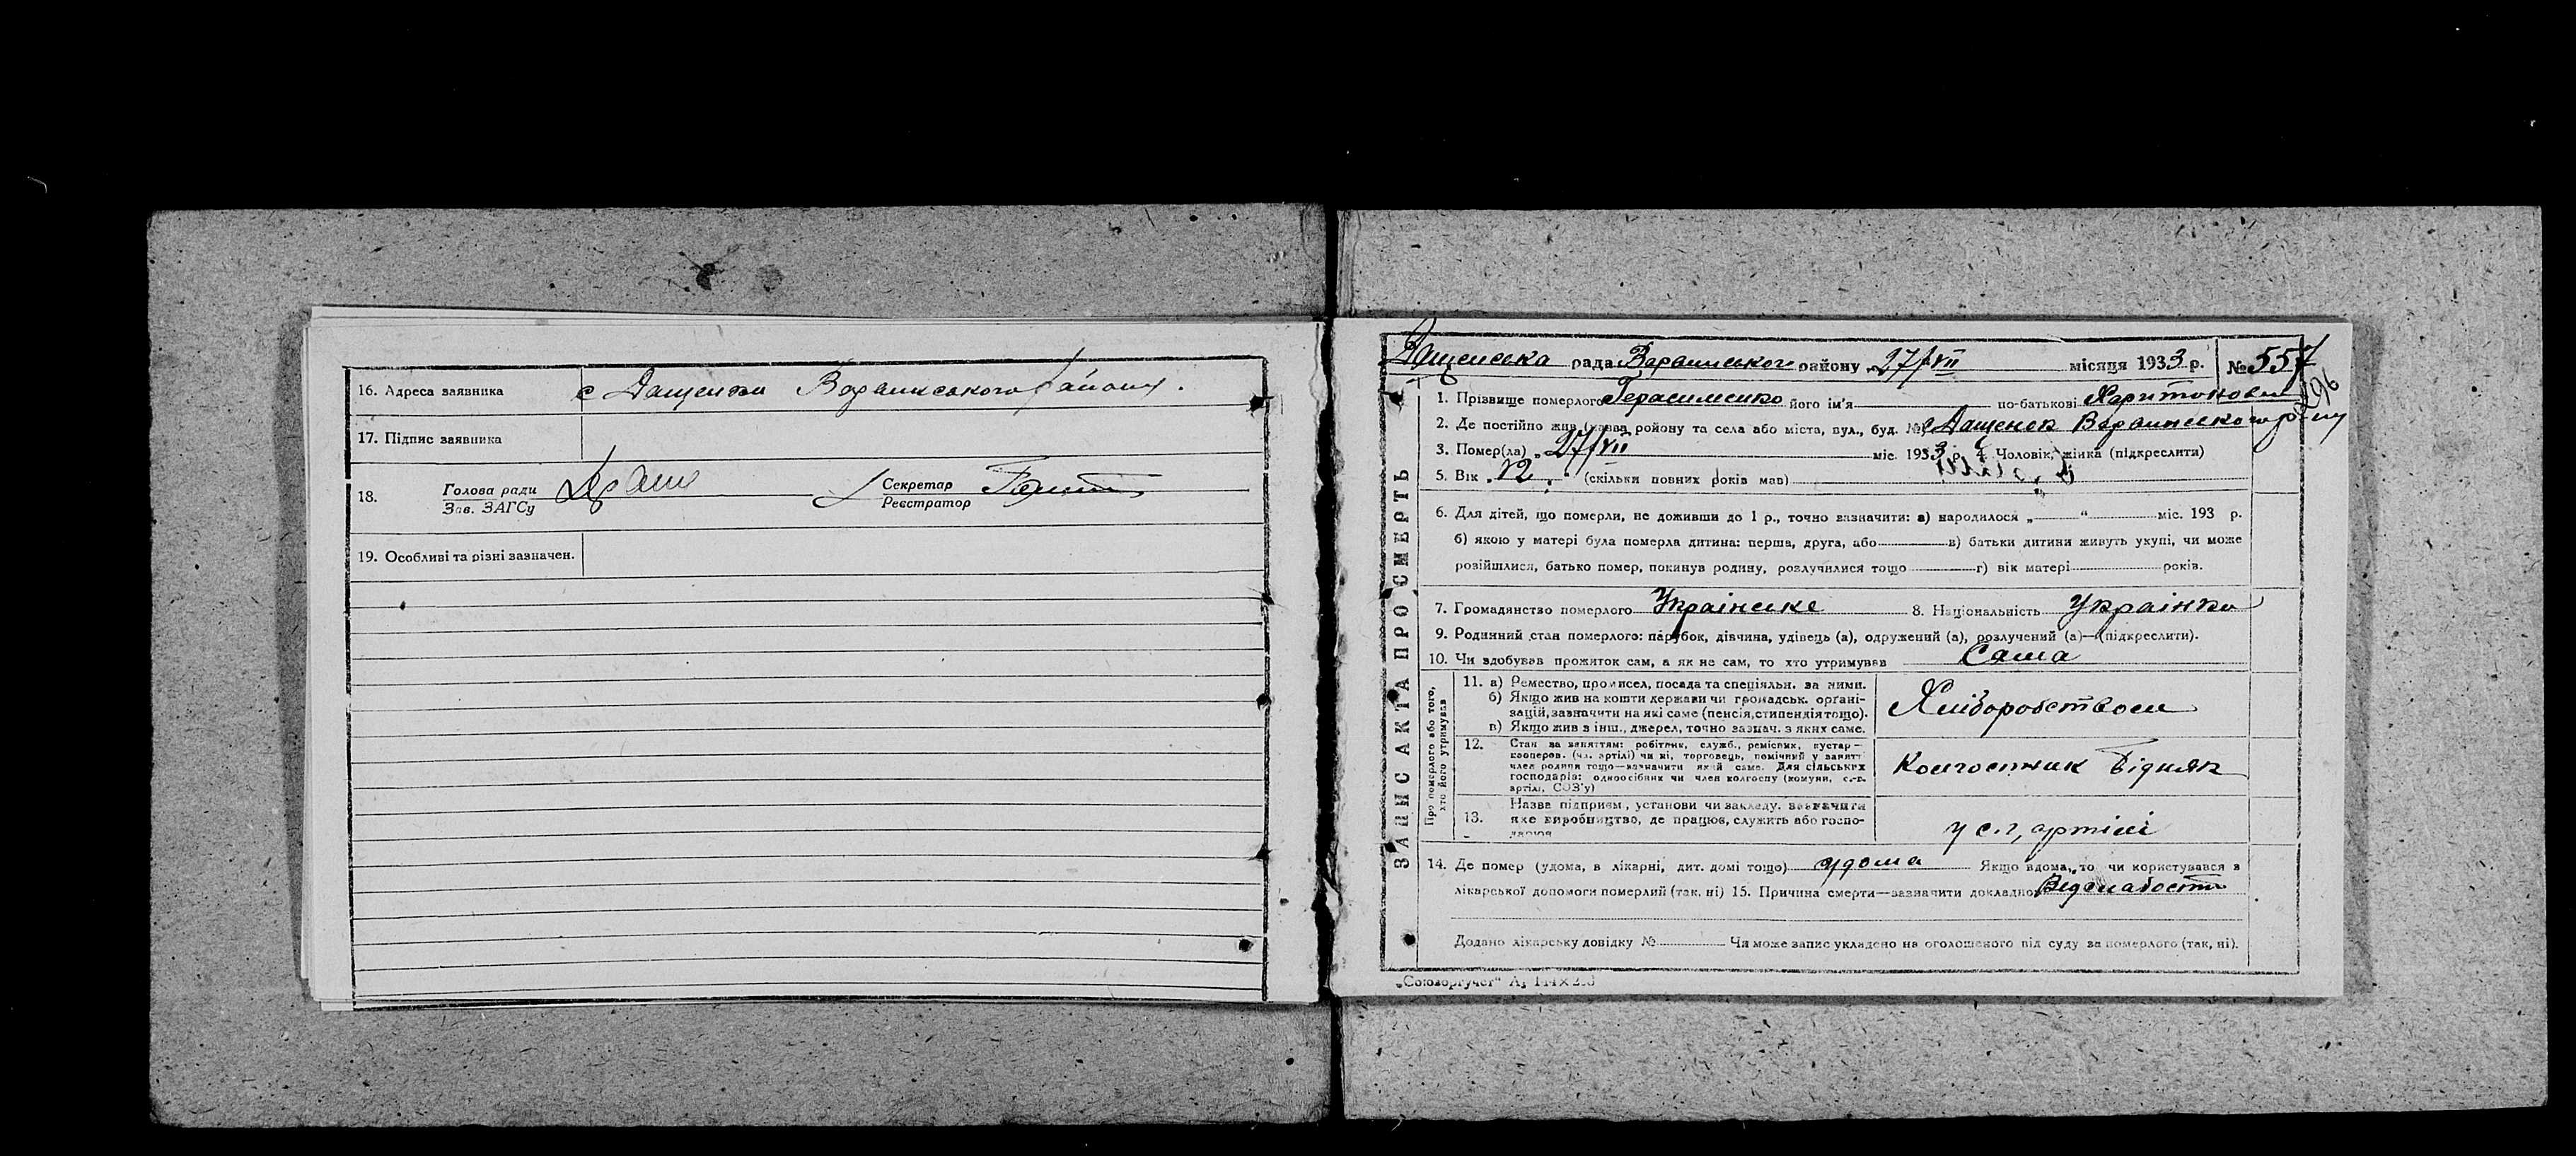 16. Адреса заявника с Дащенки Варвинського району.
17. Підпис заявника
18. Голова ради Зав. ЗАГСу Секретар Реєстратор
19. Особливі та різні зазначен.
Дащенська рада Варвинського району „27/VII місяця 1933 р. № 557
196
ЗАПИС АКТА ПРО СМЕРТЬ
1. Прізвище померлого Герасименко його ім'я по-батькові Харитонович
2. Де постійно жив (назва району та села або міста, вул., буд. №) с Дащенки Варвинського р-ну
3. Помер(ла) „27/VII міс. 1933 р. 4. Чоловік, жінка (підкреслити)
5. Вік „ 12 . “ (скільки повних років мав)
6. Для дітей, що померли, не доживши до 1 р., точно зазначити: а) народилося „ “ міс. 193 р.
б) якою у матері була померла дитина: перша, друга, або в) батьки дитини живуть укупі, чи може
розійшлися, батько помер, покинув родину, розлучилися тощо г) вік матері років.
7. Громадянство померлого Українське 8. Національність українка
9. Родинний стан померлого: парубок, дівчина, удівець (а), одружений (а), розлучений (а)—(підкреслити).
10. Чи здобував прожиток сам, а як не сам, то хто утримував Сама
Про померлого або того, хто його утримував
11. а) Ремество, промисел, посада та спеціяльн. за ними.
б) Якщо жив на кошти держави чи громадськ. органі-
зацій, зазначити на які саме (пенсія, стипендія тощо).
в) Якщо жив з інш., джерел, точно зазнач. з яких саме.
Хліборобством
12. Стан за заняттям: робітник, служб., ремісник, кустар—
кооперов. (чл. артілі) чи ні, торговець, помічний у занятт.
член родини тощо—зазначити який саме. Для сільських
господарів: одноосібник чи член колгоспу (комуни, с.-г.
артілі, СОЗ'у)
Колгоспник Бідняк
13. Назва підприєм., установи чи закладу, зазначити
яке виробництво, де працює, служить або госпо-
дарює
у с.г, артілі
14. Де помер (удома, в лікарні, дит. домі тощо) удома Якщо вдома, то чи користувався з
лікарської допомоги померлий (так, ні) 15. Причина смерти—зазначити докладно Від слабости
Додано лікарську довідку № Чи може запис укладено на оголошеного від суду за померлого (так, ні).
„Союзоргучет“